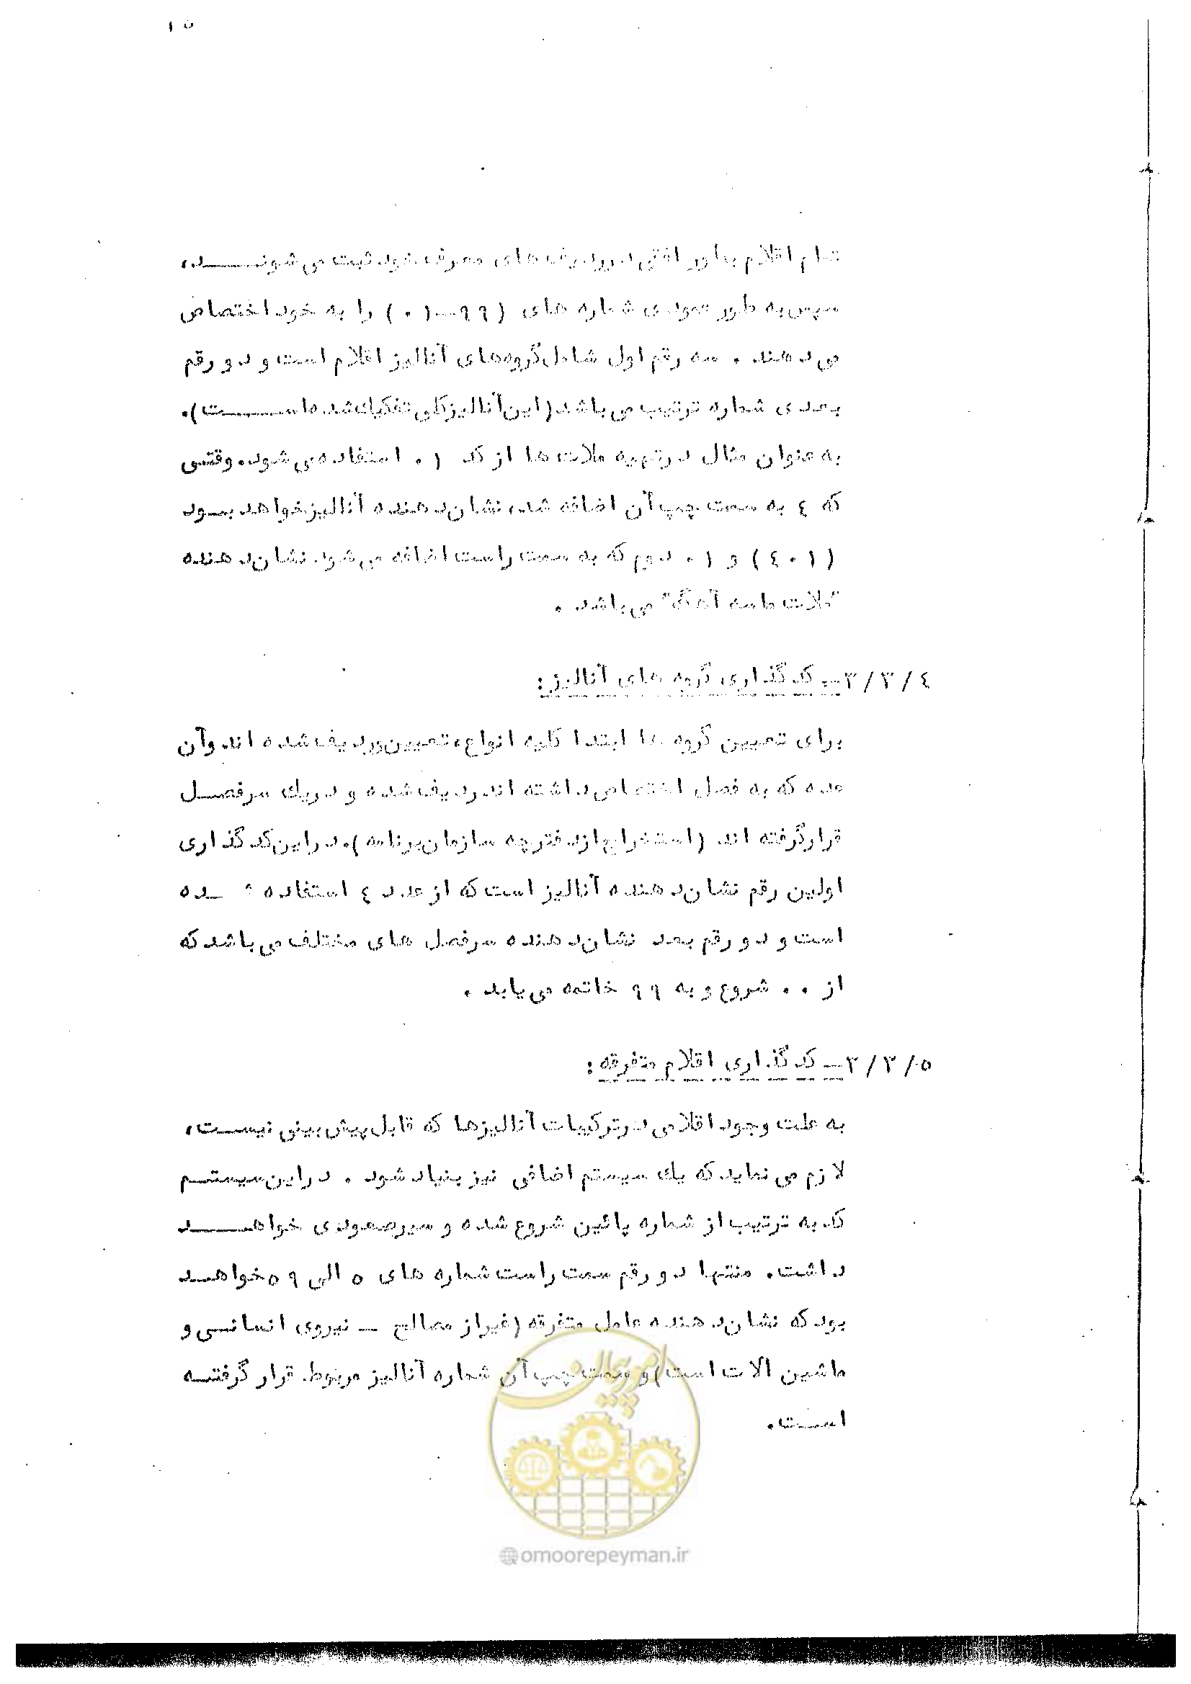 ۱۵
تمام اقلام بطور افقی در ردیف های معرف خود ثبت می شونــــد،
سپس به طور عمودی شماره های (۹۹ــ۰۱) را به خود اختصاص
می دهند . سه رقم اول شامل گروه‌های آنالیز اقلام است و دو رقم
بعدی شماره ترتیب می باشد (این آنالیز کلی تفکیک شده اســــت).
به عنوان مثال در تهیه ملات ها از کد ۰۱ استفاده می شود. وقتـی
که ٤ به سمت چپ آن اضافه شد، نشان دهنده آنالیز خواهد بــود
(٤۰۱) و ۰۱ دوم که به سمت راست اضافه می شود. نشان دهنده
"ملات ماسه آهک" می باشد .
۳/۳/٤ــ کدگذاری گروه های آنالیز:
برای تعیین گروه ها ابتدا کلیه انواع، تعیین ردیف شده اند وآن
عده که به فصل اختصاص داشته اند ردیف شده و دریک سرفصــل
قرارگرفته اند (استخراج از دفترچه سازمان برنامه). در این کدگذاری
اولین رقم نشان دهنده آنالیز است که از عدد ٤ استفاده شــده
است و دو رقم بعد نشان دهنده سرفصل های مختلف می باشد که
از ۰۰ شروع و به ۹۹ خاتمه می یابد .
۳/۳/۵ــ کدگذاری اقلام متفرقه :
به علت وجود اقلامی در ترکیبات آنالیزها که قابل پیش بینی نیســت،
لازم می نماید که یک سیستم اضافی نیز بنیاد شود . در این سیستــم
کد به ترتیب از شماره پائین شروع شده و سیر صعودی خواهــــد
داشت. منتها دو رقم سمت راست شماره های ۵ الی ۵۹ خواهــد
بود که نشان دهنده عامل متفرقه (غیر از مصالح ــ نیروی انسانـی و
ماشین الات است) و سمت چپ آن شماره آنالیز مربوط. قرار گرفتــه
اســت.
امور پیمان
@omoorepeyman.ir